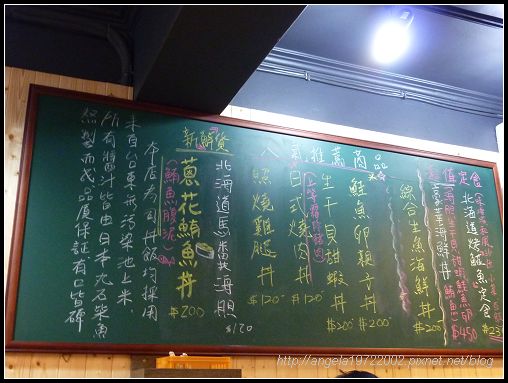 超值定食
北海道烤鯖魚定食
$23
豪華海鮮丼
$450
綜合生魚海鮮丼
$200
新推薦商品
鮭魚卵親子丼
$200
生干貝甜蝦丼
$200
日式燒肉丼
$120
照燒雞腿丼
$120
新鮮貨
北海道馬糞海膽
$120
蔥花鮪魚丼
(鮪魚腹泥)
$200
本店壽司丼飯均採用
來自台東無污染池上米,
所有醬汁皆由日本丸石柴魚
熬製而成品質保証有口皆碑
http://angela19722002.pixnet.net/blog